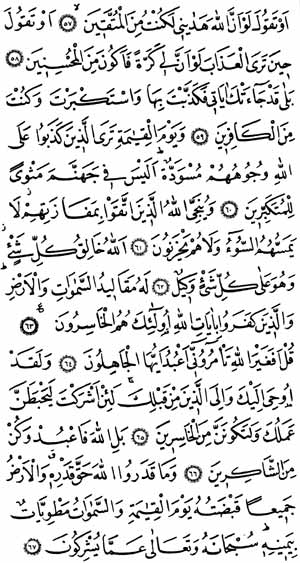 اَوْ تَقُولَ لَوْ اَنَّ اللّٰهَ هَدٰينٖي لَكُنْتُ مِنَ الْمُتَّقٖينَ ﴿٥٧﴾ اَوْ تَقُولَ
حٖينَ تَرَى الْعَذَابَ لَوْ اَنَّ لٖي كَرَّةً فَاَكُونَ مِنَ الْمُحْسِنٖينَ ﴿٥٨﴾
بَلٰى قَدْ جَاءَتْكَ اٰيَاتٖي فَكَذَّبْتَ بِهَا وَاسْتَكْبَرْتَ وَكُنْتَ
مِنَ الْكَافِرٖينَ ﴿٥٩﴾ وَيَوْمَ الْقِيٰمَةِ تَرَى الَّذٖينَ كَذَبُوا عَلَى
اللّٰهِ وُجُوهُهُمْ مُسْوَدَّةٌ اَلَيْسَ فٖي جَهَنَّمَ مَثْوًى
لِلْمُتَكَبِّرٖينَ ﴿٦٠﴾ وَيُنَجِّي اللّٰهُ الَّذٖينَ اتَّقَوْا بِمَفَازَتِهِمْ لَا
يَمَسُّهُمُ السُّوءُ وَلَا هُمْ يَحْزَنُونَ ﴿٦١﴾ اَللّٰهُ خَالِقُ كُلِّ شَيْءٍ
وَهُوَ عَلٰى كُلِّ شَيْءٍ وَكٖيلٌ ﴿٦٢﴾ لَهُ مَقَالٖيدُ السَّمٰوَاتِ وَالْاَرْضِ
وَالَّذٖينَ كَفَرُوا بِاٰيَاتِ اللّٰهِ اُولٰئِكَ هُمُ الْخَاسِرُونَ ﴿٦٣﴾
قُلْ اَفَغَيْرَ اللّٰهِ تَاْمُرُونّٖي اَعْبُدُ اَيُّهَا الْجَاهِلُونَ ﴿٦٤﴾ وَلَقَدْ
اُوحِيَ اِلَيْكَ وَاِلَى الَّذٖينَ مِنْ قَبْلِكَ لَئِنْ اَشْرَكْتَ لَيَحْبَطَنَّ
عَمَلُكَ وَلَتَكُونَنَّ مِنَ الْخَاسِرٖينَ ﴿٦٥﴾ بَلِ اللّٰهَ فَاعْبُدْ وَكُنْ
مِنَ الشَّاكِرٖينَ ﴿٦٦﴾ وَمَا قَدَرُوا اللّٰهَ حَقَّ قَدْرِهٖ وَالْاَرْضُ
جَمٖيعًا قَبْضَتُهُ يَوْمَ الْقِيٰمَةِ وَالسَّمٰوَاتُ مَطْوِيَّاتٌ
بِيَمٖينِهٖ سُبْحَانَهُ وَتَعَالٰى عَمَّا يُشْرِكُونَ ﴿٦٧﴾